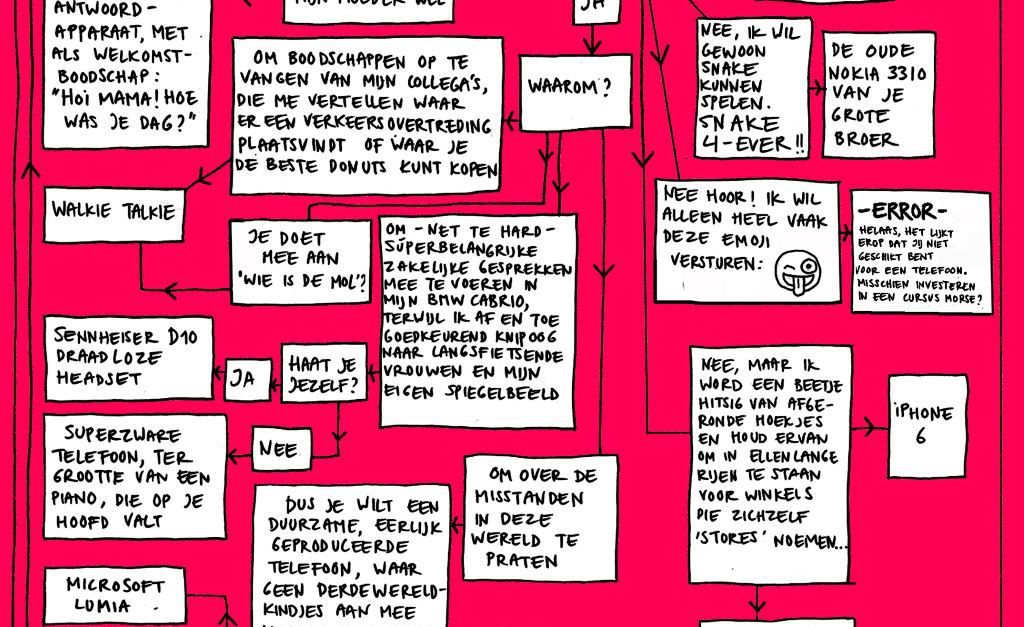 ANTWOORD-
APPARAAT, MET
ALS WELKOMST-
BOODSCHAP:
"HOI MAMA! HOE
WAS JE DAG?"
MIJN MOEDER WEL
JA
OM BOODSCHAPPEN OP TE
VANGEN VAN MIJN COLLEGA'S,
DIE ME VERTELLEN WAAR
ER EEN VERKEERSOVERTREDING
PLAATSVINDT OF WAAR JE
DE BESTE DONUTS KUNT KOPEN
WAAROM?
NEE, IK WIL
GEWOON
SNAKE
KUNNEN
SPELEN.
SNAKE
4-EVER!!
DE OUDE
NOKIA 3310
VAN JE
GROTE
BROER
WALKIE TALKIE
JE DOET
MEE AAN
'WIE IS DE MOL'?
OM -NET TE HARD-
SUPERBELANGRIJKE
ZAKELIJKE GESPREKKEN
MEE TE VOEREN IN
MIJN BMW CABRIO,
TERWIJL IK AF EN TOE
GOEDKEUREND KNIPOOG
NAAR LANGSFIETSENDE
VROUWEN EN MIJN
EIGEN SPIEGELBEELD
NEE HOOR! IK WIL
ALLEEN HEEL VAAK
DEZE EMOJI
VERSTUREN:
-ERROR-
HELAAS, HET LIJKT
EROP DAT JIJ NIET
GESCHIKT BENT
VOOR EEN TELEFOON.
MISSCHIEN INVESTEREN
IN EEN CURSUS MORSE?
SENNHEISER D10
DRAADLOZE
HEADSET
JA
HAAT JE
JEZELF?
SUPERZWARE
TELEFOON, TER
GROOTTE VAN EEN
PIANO, DIE OP JE
HOOFD VALT
NEE
NEE, MAAR IK
WORD EEN BEETJE
HITSIG VAN AFGE-
RONDE HOEKJES
EN HOUD ERVAN
OM IN ELLENLANGE
RIJEN TE STAAN
VOOR WINKELS
DIE ZICHZELF
'STORES' NOEMEN...
iPHONE
6
DUS JE WILT EEN
DUURZAME, EERLIJK
GEPRODUCEERDE
TELEFOON, WAAR
GEEN DERDEWERELD-
KINDJES AAN MEE
OM OVER DE
MISSTANDEN
IN DEZE
WERELD TE
PRATEN
MICROSOFT
LUMIA